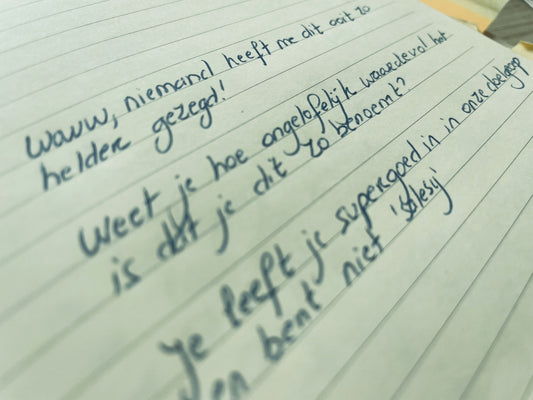 Wauw, niemand heeft me dit ooit zo
helder gezegd!
Weet je hoe ongelofelijk waardevol het
is dat je dit zo benoemt?
Je leeft je supergoed in in onze doelgroep
en bent niet 'salesy'